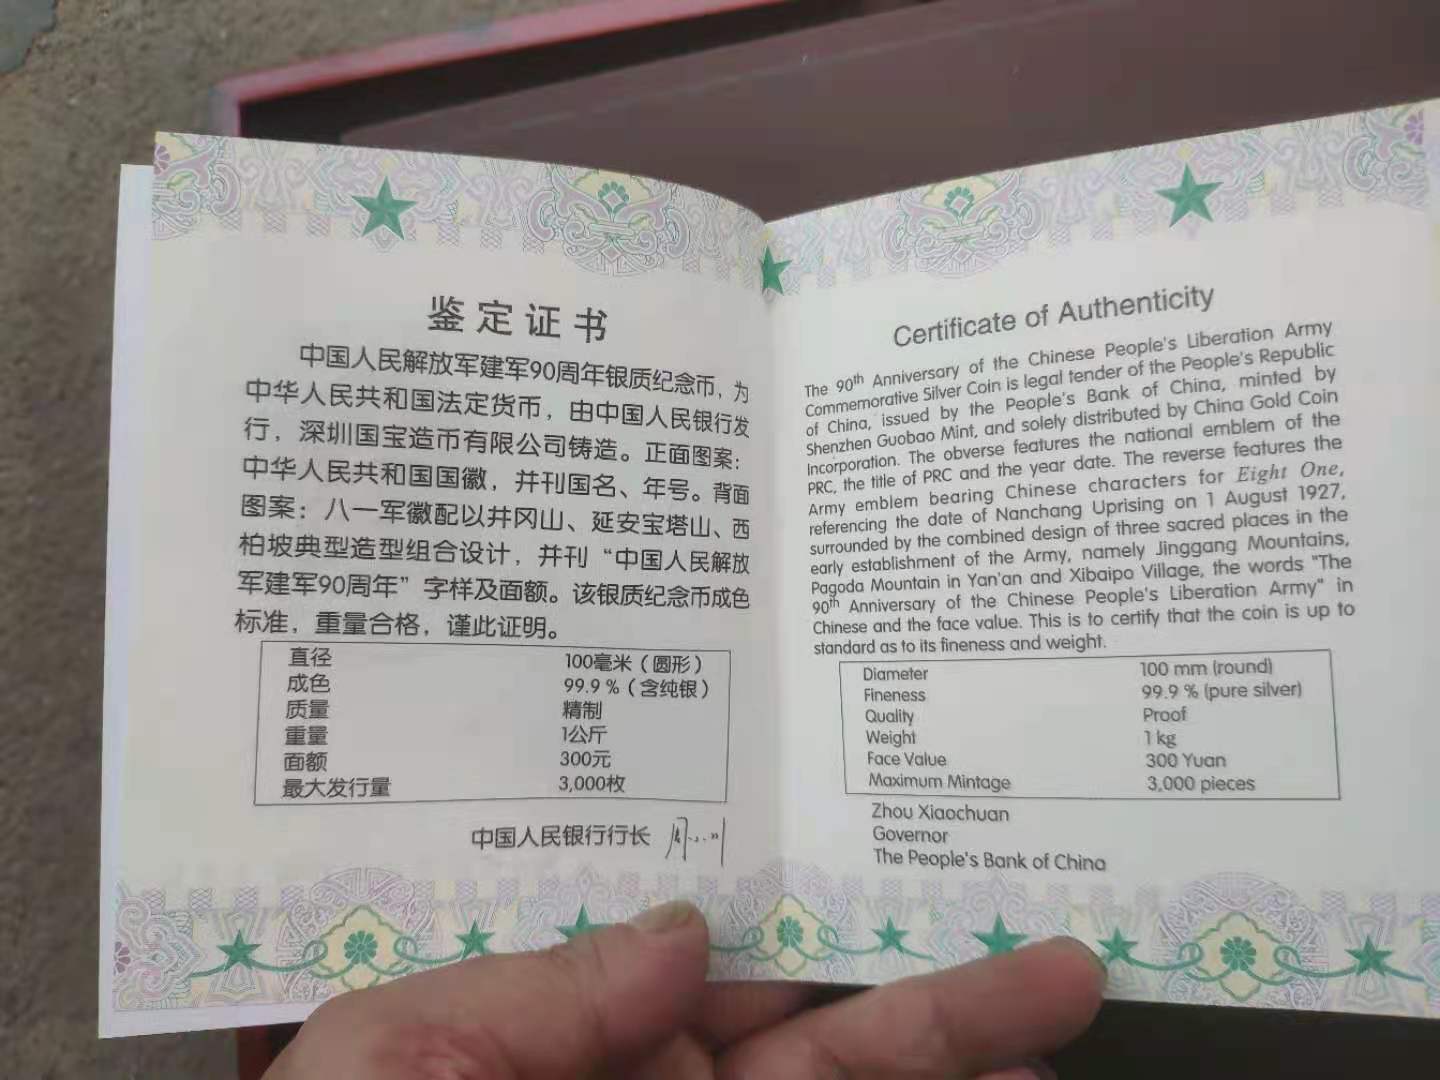 鉴定证书
中国人民解放军建军90周年银质纪念币，为
中华人民共和国法定货币，由中国人民银行发
行，深圳国宝造币有限公司铸造。正面图案：
中华人民共和国国徽，并刊国名、年号。背面
图案：八一军徽配以井冈山、延安宝塔山、西
柏坡典型造型组合设计，并刊“中国人民解放
军建军90周年”字样及面额。该银质纪念币成色
标准，重量合格，谨此证明。
直径 100毫米（圆形）
成色 99.9 %（含纯银）
质量 精制
重量 1公斤
面额 300元
最大发行量 3,000枚
中国人民银行行长 周小川
Certificate of Authenticity
The 90th Anniversary of the Chinese People's Liberation Army
Commemorative Silver Coin is legal tender of the People's Republic
of China, issued by the People's Bank of China, minted by
Shenzhen Guobao Mint, and solely distributed by China Gold Coin
Incorporation. The obverse features the national emblem of the
PRC, the title of PRC and the year date. The reverse features the
Army emblem bearing Chinese characters for Eight One,
referencing the date of Nanchang Uprising on 1 August 1927,
surrounded by the combined design of three sacred places in the
early establishment of the Army, namely Jinggang Mountains,
Pagoda Mountain in Yan'an and Xibaipo Village, the words "The
90th Anniversary of the Chinese People's Liberation Army" in
Chinese and the face value. This is to certify that the coin is up to
standard as to its fineness and weight.
Diameter 100 mm (round)
Fineness 99.9 % (pure silver)
Quality Proof
Weight 1 kg
Face Value 300 Yuan
Maximum Mintage 3,000 pieces
Zhou Xiaochuan
Governor
The People's Bank of China